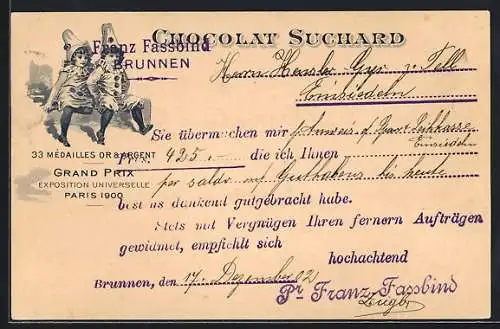 CHOCOLAT SUCHARD
Franz Fassbind
BRUNNEN
Herrn Gyr z. Tell
Einsiedeln
Sie übermachen mir p.
Einsiedeln
Frs. 425.— die ich Ihnen
33 MÉDAILLES OR & ARGENT
GRAND PRIX
EXPOSITION UNIVERSELLE
PARIS 1900
per saldo Guthabens bis heute
bestens dankend gutgebracht habe.
Stets mit Vergnügen Ihren fernern Aufträgen
gewidmet, empfiehlt sich
hochachtend
Brunnen, den 17. Dezember 02
Pr Franz Fassbind